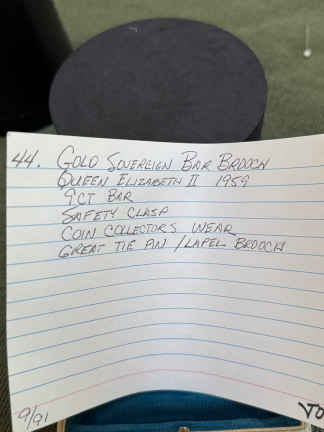 44. GOLD SOVEREIGN BAR BROOCH
QUEEN ELIZABETH II 1959
9CT BAR
SAFETY CLASP
COIN COLLECTORS WEAR
GREAT TIE PIN / LAPEL BROOCH
9/91